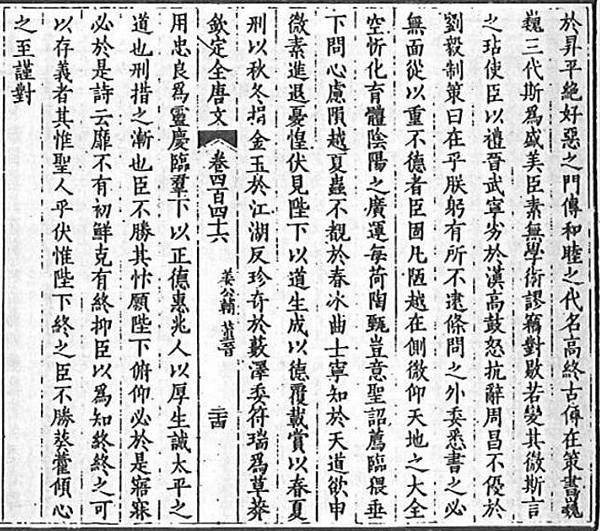 於昇平絶好惡之門傳和睦之代名高終古傳在策書巍
巍三代斯爲盛美臣素無學術謬竊對敭若變其微斯言
之玷使臣以禮晉武寧劣於漢高鼓怒抗辭周昌不優於
劉毅制策曰在乎朕躬有所不逮條問之外委悉書之必
無面從以重不德者臣固凡陋越在側微仰天地之大全
空忻化育體陰陽之廣運每荷陶甄豈意聖詔薦臨猥垂
下問心慮隕越夏蟲不覿於春冰曲士寧知於天道欲申
微素進退憂惶伏見陛下以道生成以德覆載賞以春夏
刑以秋冬捐金玉於江湖反珍奇於藪澤委符瑞爲草莽
欽定全唐文 卷四百四十六 姜公輔 董晉
用忠良爲靈慶臨羣下以正德惠兆人以厚生誠太平之
道也刑措之漸也臣不勝其忭願陛下俯仰必於是寤寐
必於是詩云靡不有初鮮克有終抑臣以爲知終終之可
以存義者其惟聖人乎伏惟陛下終之臣不勝葵藿傾心
之至謹對